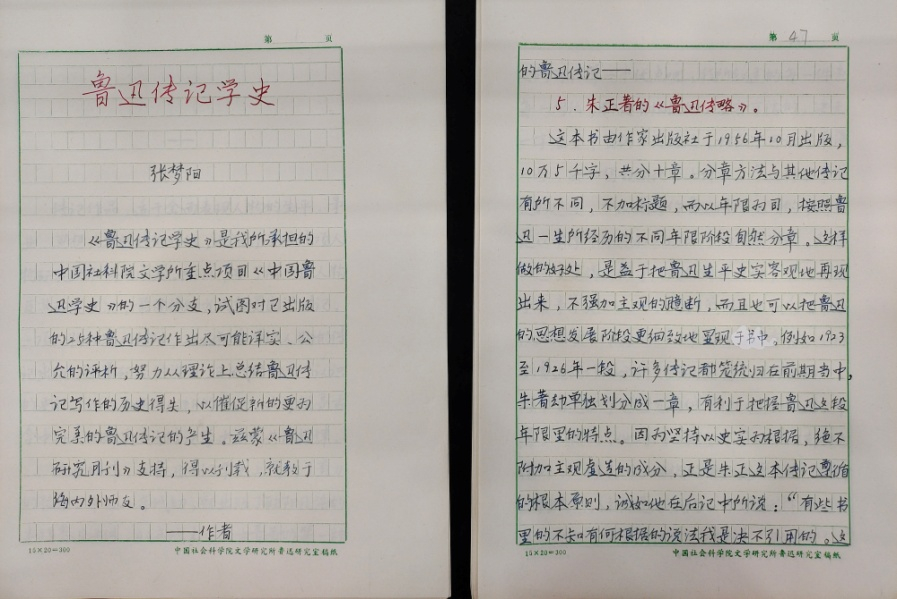 第 页
鲁迅传记学史
张梦阳
《鲁迅传记学史》是我所承担的
中国社科院文学所重点项目《中国鲁
迅学史》的一个分支，试图对已出版
的25种鲁迅传记作出尽可能详实、公
允的评析，努力从理论上总结鲁迅传
记写作的历史得失，以催促新的更为
完美的鲁迅传记的产生。兹蒙《鲁迅
研究月刊》支持，得以刊载，就教于
海内外师友。
——作者
15×20=300 中国社会科学院文学研究所鲁迅研究室稿纸
第 47 页
的鲁迅传记——
5、朱正著的《鲁迅传略》。
这本书由作家出版社于1956年10月出版，
10万5千字，共分十章。分章方法与其他传记
有所不同，不加标题，而以年限为目，按照鲁
迅一生所经历的不同年限阶段自然分章。这样
做的好处，是益于把鲁迅生平史实客观地再现
出来，不强加主观的臆断，而且也可以把鲁迅
的思想发展阶段更细致地呈现于书中。例如1923
至1926年一段，许多传记都笼统归在前期当中，
朱著却单独划分成一章，有利于把握鲁迅这段
年限里的特点。因为坚持以史实为根据，绝不
附加主观虚造的成分，正是朱正这本传记遵循
的根本原则，诚如他在后记中所说：“有些书
里的不知有何根据的说法我是决不引用的。这
15×20=300 中国社会科学院文学研究所鲁迅研究室稿纸